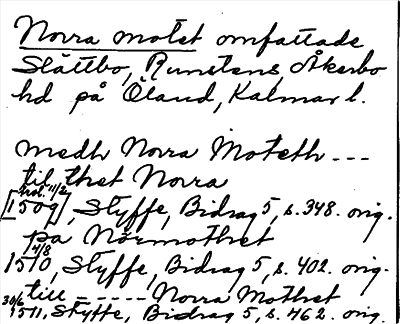 Norra motet omfattade
Slättbo, Runstens, Åkerbo
hd på Öland, Kalmar l.
medh Norra Moteth ---
till thet Norra
[1509], Styffe, Bidrag 5, s. 348. orig.
på Nörmothet
4/8
1510, Styffe, Bidrag 5, s. 402. orig.
till - - - - - Norra Mothet
30/6 1511, Styffe, Bidrag 5, s. 462. orig.